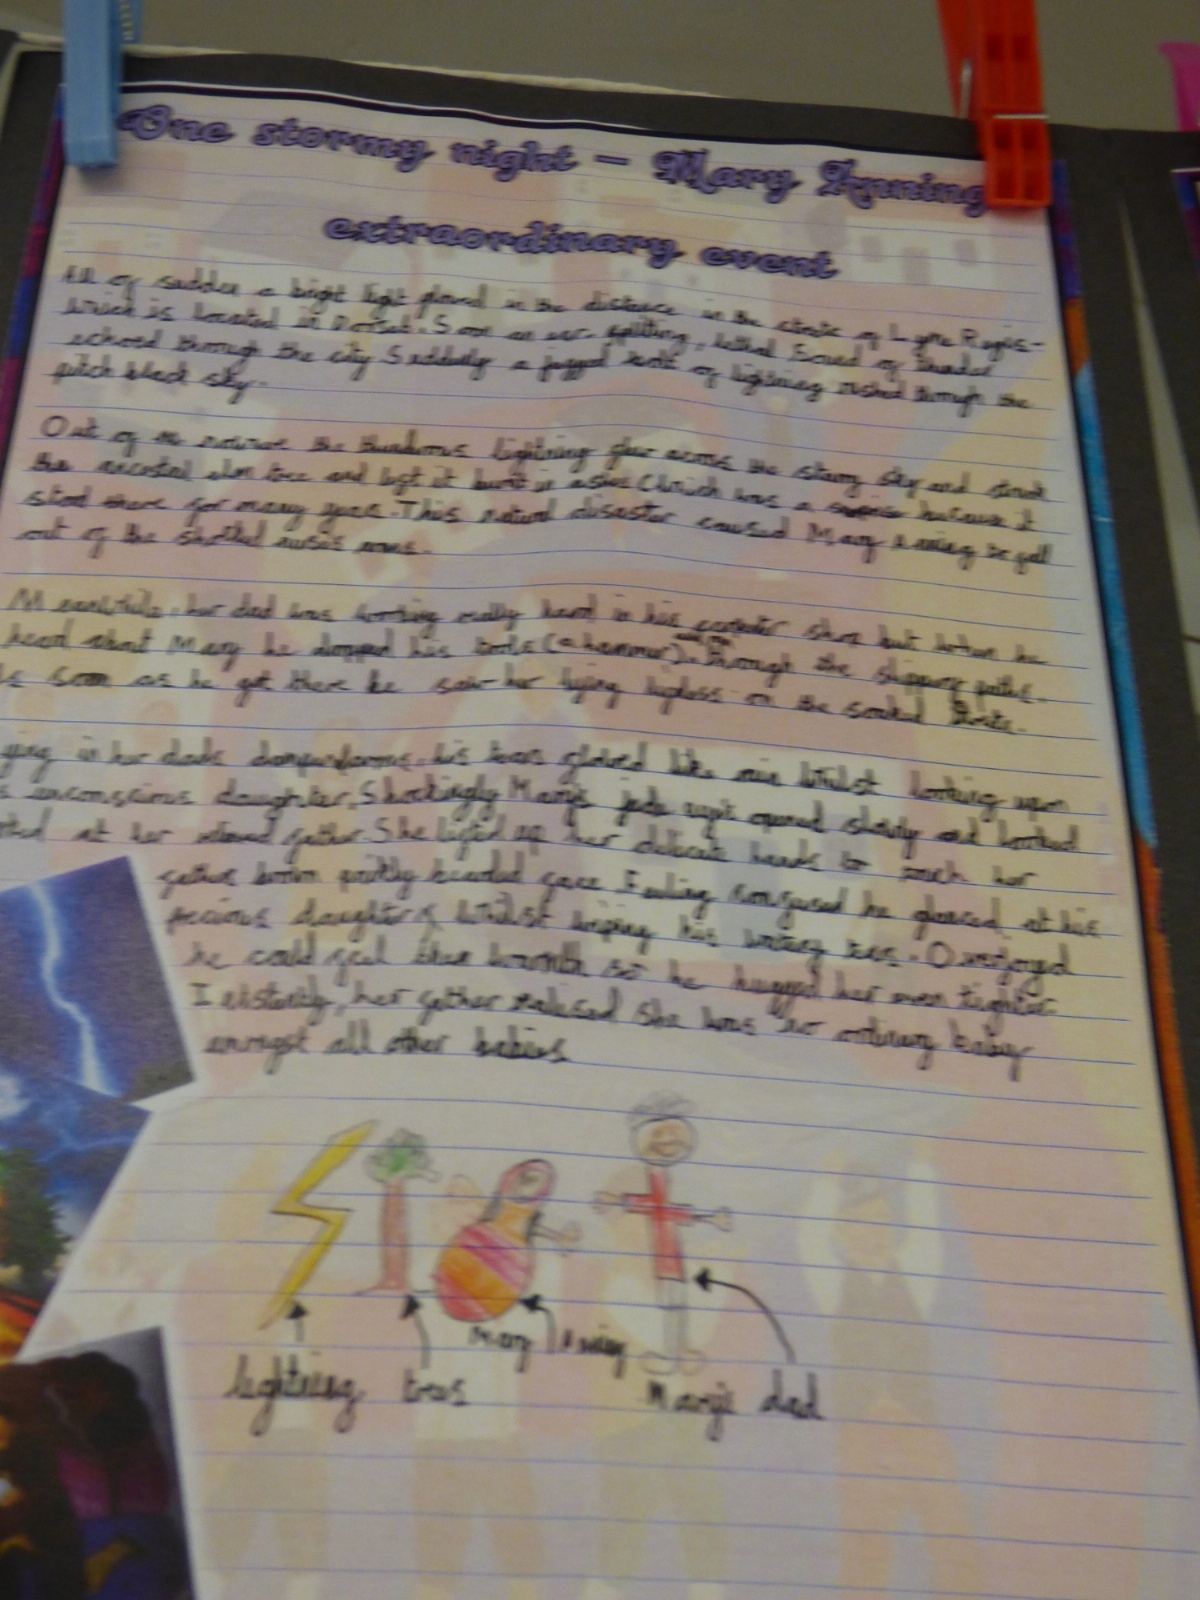 One stormy night - Mary Anning
extraordinary event
All of sudden a bright light glowed in the distance in the streets of Lyme Regis-
which is located in Dorset. Soon an ear splitting, lethal sound of thunder
echoed through the city Suddenly a jagged of lightning rushed through the
pitch black sky.
Out of the the lightning flew across the starry sky and struck
the ancestral elm tree and left it burnt in which was a because it
stood there for many years. This natural disaster caused Mary Anning to fall
out of the arms.
Meanwhile, her dad was working really hard in his shop but when he
heard about Mary he dropped his tools (a hammer) through the slippery paths.
soon as he got there he saw her lying on the soaked
in her dads his tears glowed like whilst looking upon
daughter. Shockingly Mary's jade opened slowly and looked
at her father. She lifted up her delicate hands to touch her
father bearded face. Feeling confused he glanced at his
precious daughter whilst wiping his tears. Overjoyed
he could feel warmth so he hugged her even tighter.
Instantly, her father realised she was no ordinary baby
amongst all other babies
Mary Anning
lightning trees Mary's dad